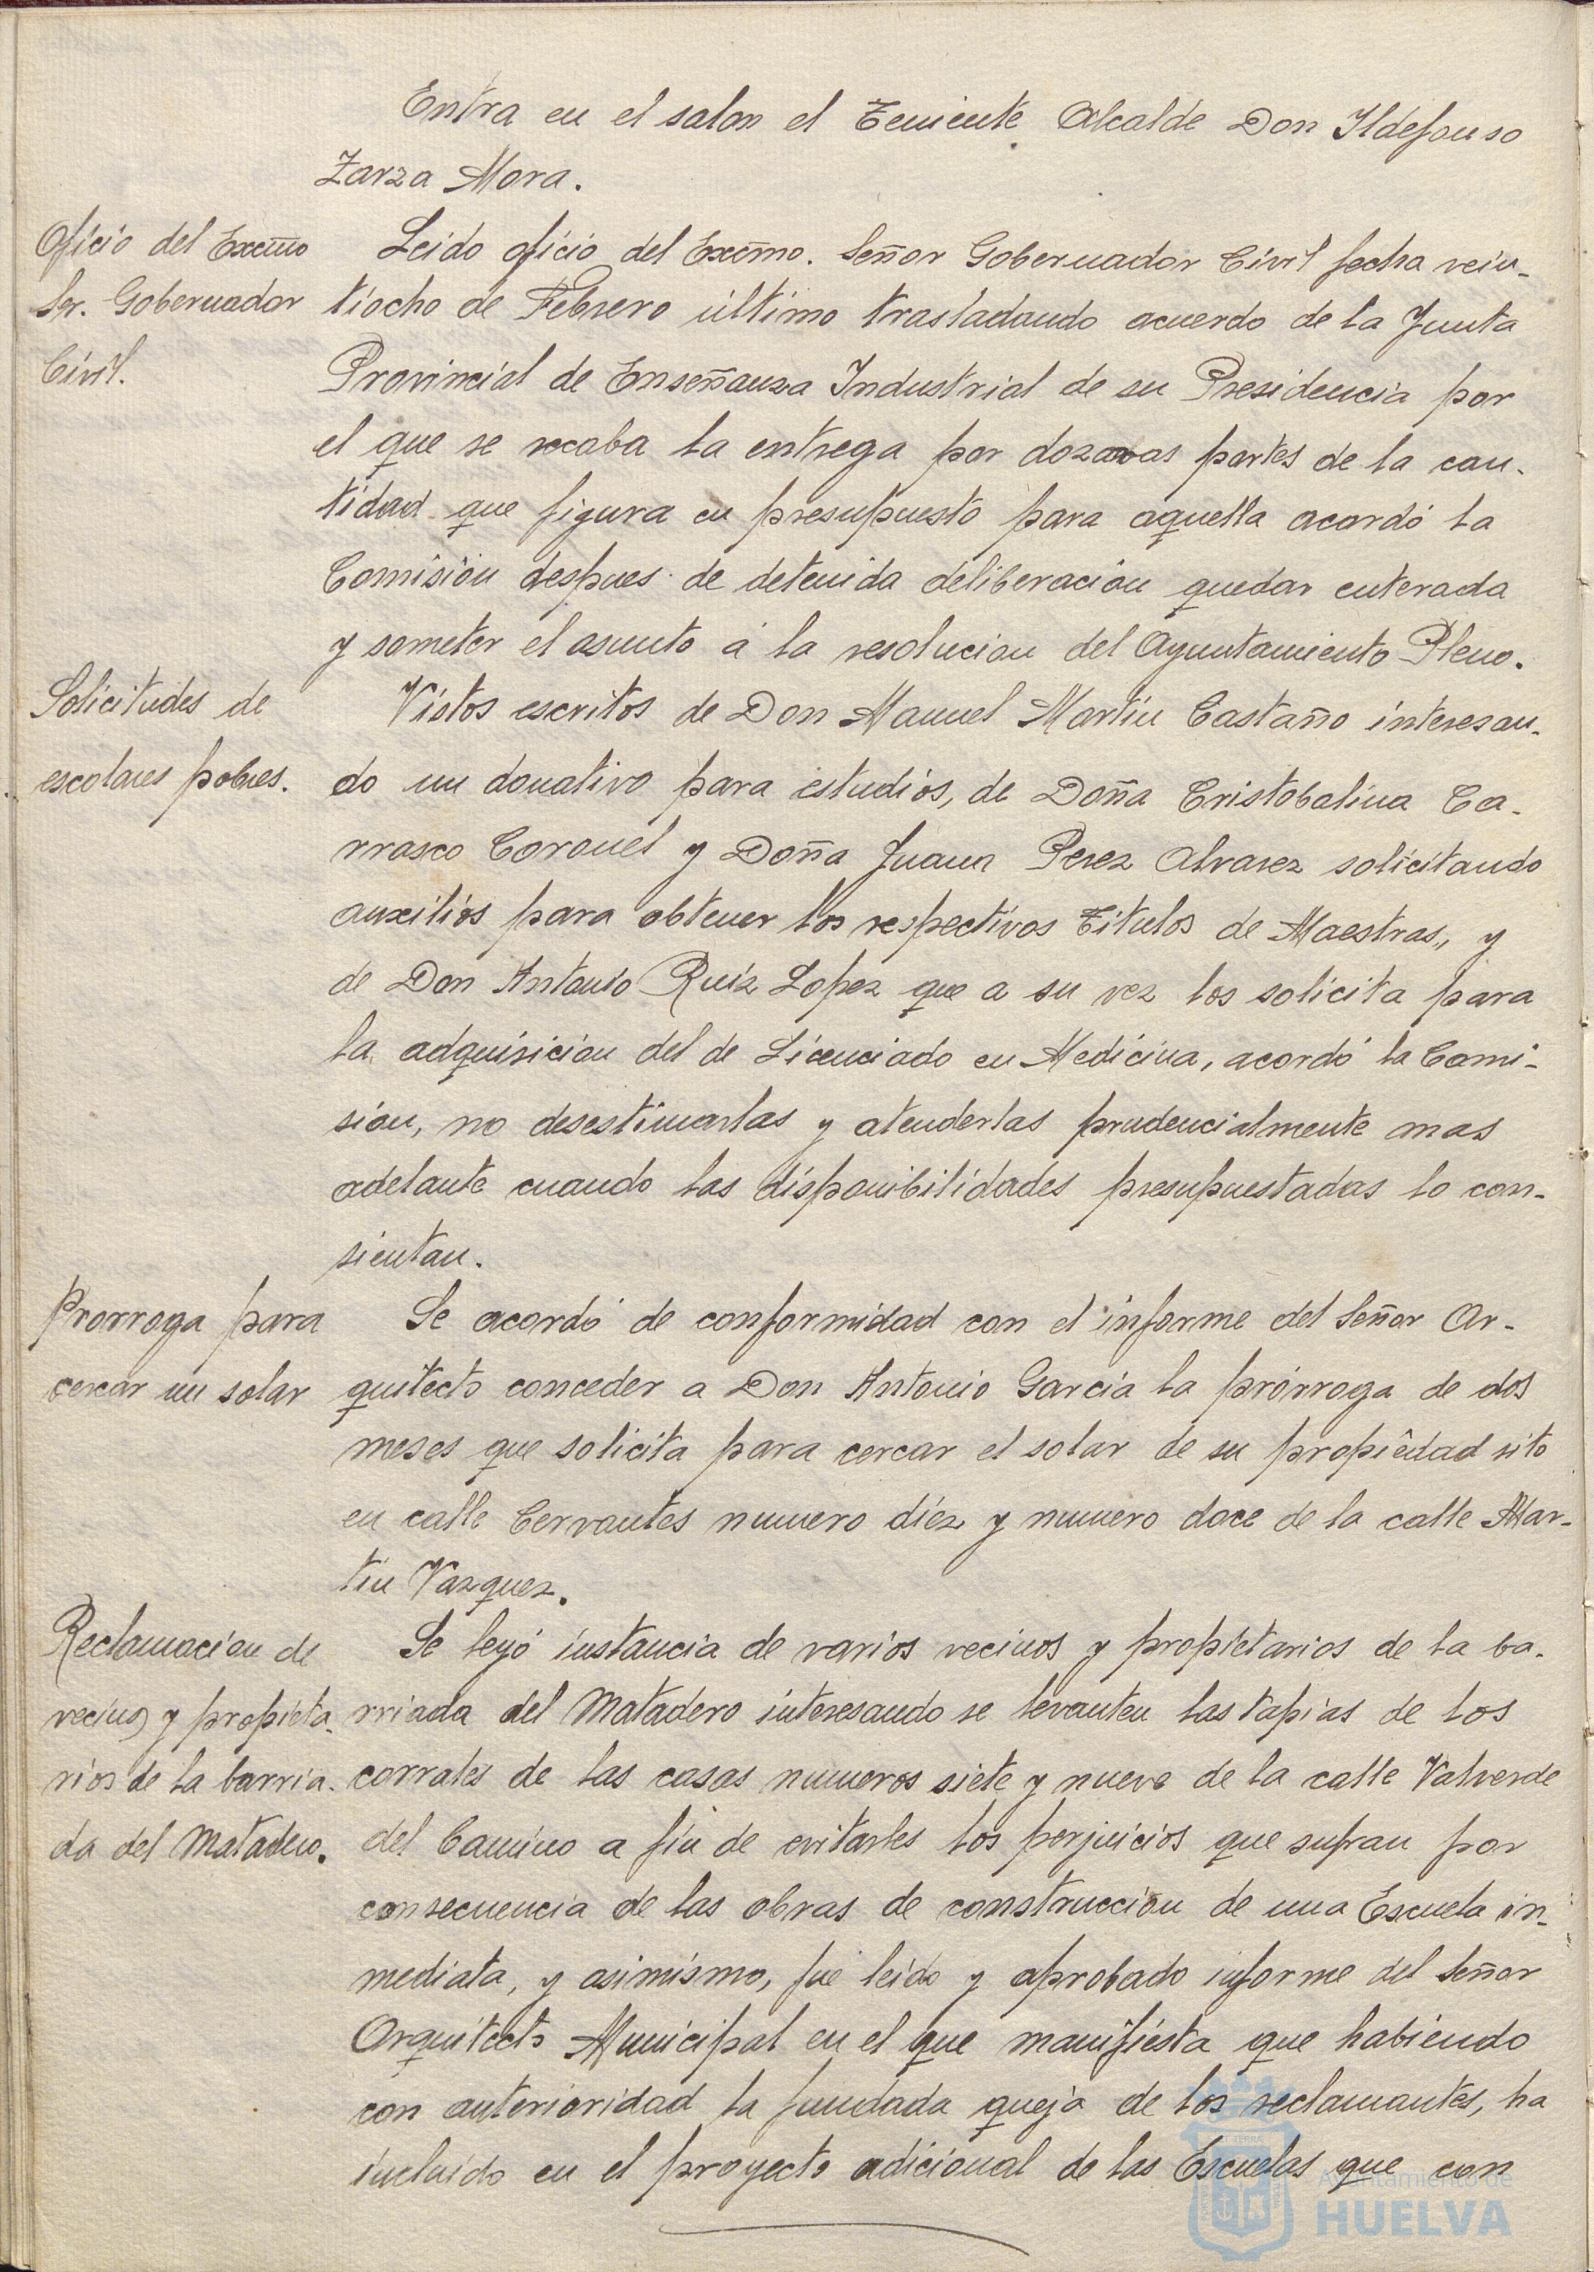 Entra en el salon el Teniente Alcalde Don Ildefonso
Zarza Mora.
Oficio del Excmo
Sr. Gobernador
Civil.
Leido oficio del Excmo. Señor Gobernador Civil fecha vein-
tiocho de Febrero último trasladando acuerdo de la Junta
Provincial de Enseñanza Industrial de su Presidencia por
el que se recaba la entrega por dozavas partes de la can-
tidad que figura en presupuesto para aquella acordó la
Comisión despues de detenida deliberación quedar enterada
y someter el asunto á la resolucion del Ayuntamiento Pleno.
Solicitudes de
escolares pobres.
Vistos escritos de Don Manuel Martin Castaño interesan-
do un donativo para estudios, de Doña Cristobalina Ca-
rrasco Coronel y Doña Juana Perez Alvarez solicitando
auxilios para obtener los respectivos Titulos de Maestras, y
de Don Antonio Ruiz Lopez que a su vez los solicita para
la adquisicion del de Licenciado en Medicina, acordó la Comi-
sión, no desestimarlas y atenderlas prudencialmente mas
adelante cuando las disponibilidades presupuestadas lo con-
sientan.
Prorroga para
cercar un solar
Se acordó de conformidad con el informe del Señor Ar-
quitecto conceder a Don Antonio Garcia la prórroga de dos
meses que solicita para cercar el solar de su propiedad sito
en calle Cervantes numero diez y numero doce de la calle Mar-
tin Vazquez.
Reclamacion de
vecinos y propieta-
rios de la barria-
da del Matadero.
Se leyó instancia de varios vecinos y propietarios de la ba-
rriada del Matadero interesando se levanten las tapias de los
corrales de las casas numeros siete y nueve de la calle Valverde
del Camino a fin de evitarles los perjuicios que sufran por
consecuencia de las obras de construccion de una Escuela in-
mediata, y asimismo, fué leido y aprobado informe del Señor
Arquitecto Municipal en el que manifiesta que habiendo
con anterioridad la fundada queja de los reclamantes, ha
incluido en el proyecto adicional de las Escuelas que con
Ayuntamiento de
HUELVA